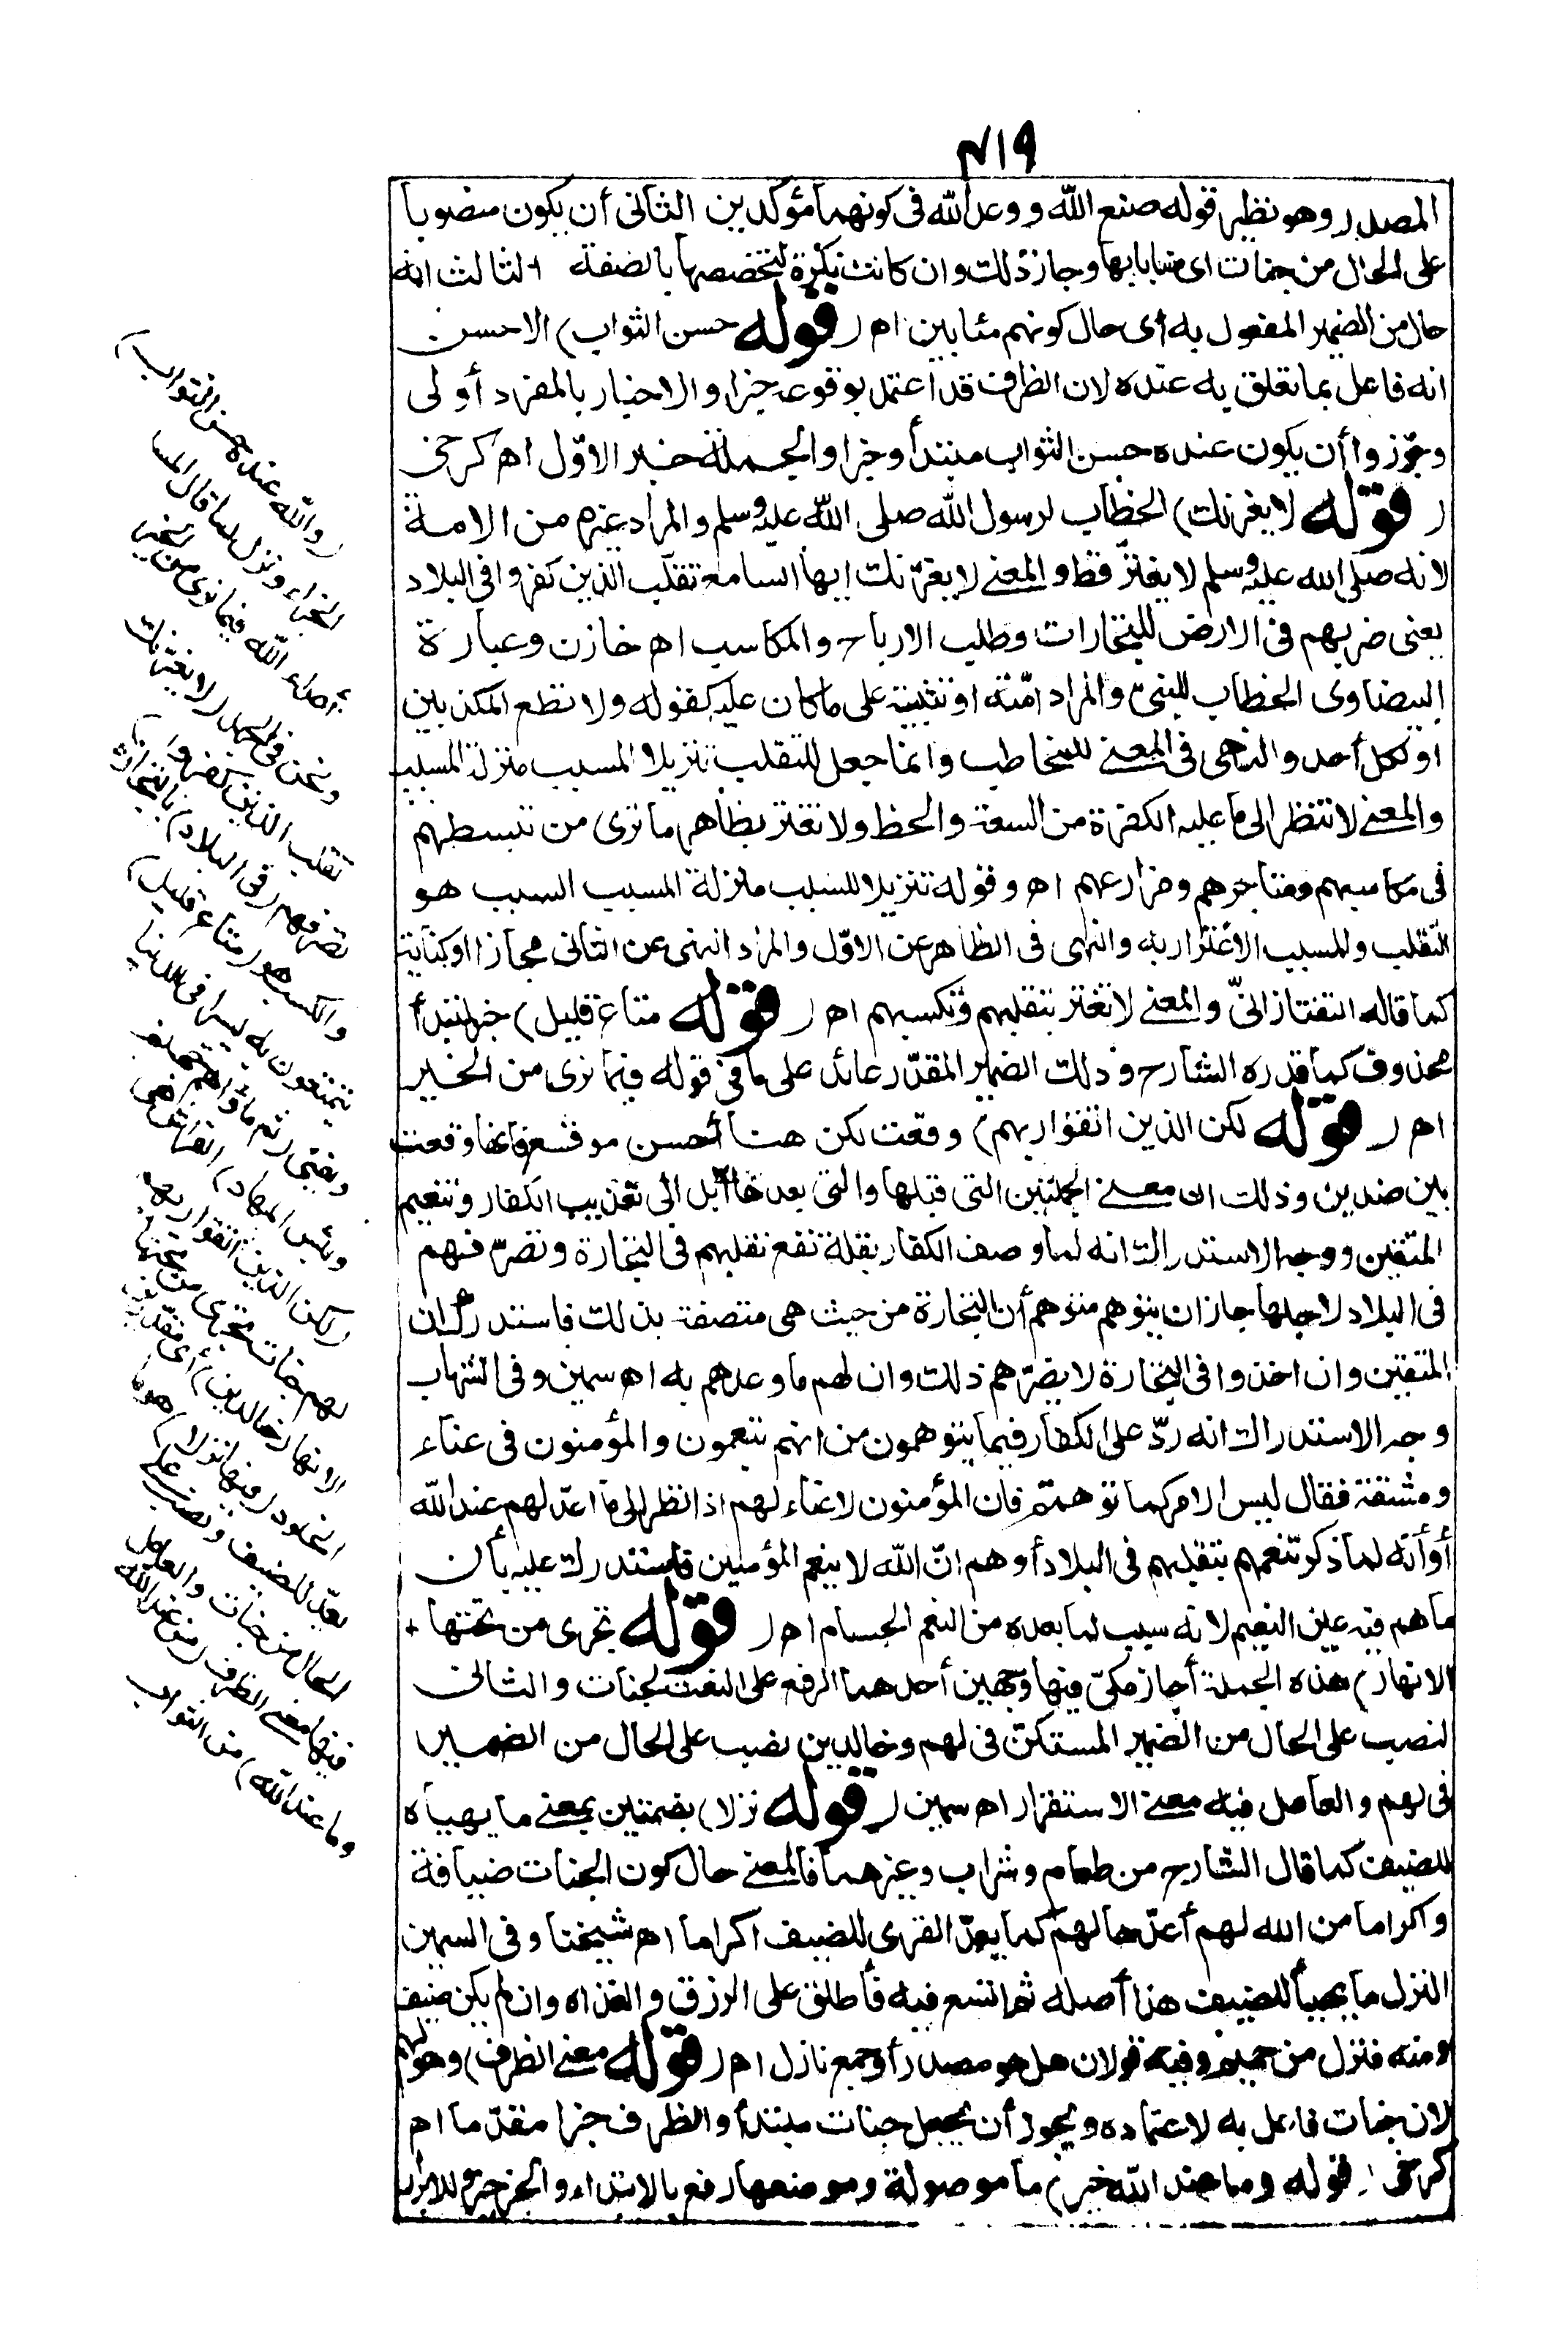 ٤١٩
المصدر وهو نظير قوله صنع الله ووعد الله فى كونهما مؤكدين الثانى أن يكون منصوبا
على الحال من جنات اى مثابا بها وجاز ذلك وان كانت نكرة لتخصصها بالصفة الثالث انه
حال من الضمير المفعول به أى حال كونهم مثابين اه ( قوله حسن الثواب) الاحسن
انه فاعل بما تعلق به عنده لان الظرف قد اعتمد بوقوعه خبرا والاخبار بالمفرد أولى
وجوّزوا أن يكون عنده حسن الثواب مبتدأ وخبرا والجملة خبر الاوّل اه كرخى
( قوله لا يغرنك) الخطاب لرسول الله صلى الله عليه وسلم والمراد غيره من الامة
لانه صلى الله عليه وسلم لا يغترّ قط والمعنى لا يغرّنك ايها السامع تقلّب الذين كفروا فى البلاد
يعنى ضربهم فى الارض للتجارات وطلب الارباح والمكاسب اه خازن وعبارة
البيضاوى الخطاب للنبىّ والمراد امّته او تثبيته على ما كان عليه كقوله ولا تطع المكذبين
او لكل أحد والنهى فى المعنى للمخاطب وانما جعل للتقلب تنزيلا للسبب منزلة المسبب
والمعنى لا تنظر الى ما عليه الكفرة من السعة والحظ ولا تغتر بظاهر ما ترى من تبسطهم
فى مكاسبهم ومتاجرهم ومزارعهم اه وقوله تنزيلا للسبب منزلة المسبب السبب هو
التّقلب والمسبب الاغترار به والنهى فى الظاهر عن الاوّل والمراد النهى عن الثانى مجازا او كناية
كما قاله التفتازانىّ والمعنى لا تغتر بتقلبهم وتكسبهم اه ( قوله متاع قليل) خبر مبتدأ
محذوف كما قدره الشارح وذلك الضمير المقدّر عائد على ما فى قوله فيما نرى من الخير
اه ( قوله لكن الذين اتقوا ربهم) وقعت لكن هنا أحسن موقع فانها وقعت
بين ضدين وذلك ان معنى الجملتين التى قبلها والتى بعدها آيل الى تعذيب الكفار وتنعيم
المتقين ووجه الاستدراك انه لما وصف الكفار بقلة نفع تقلبهم فى التجارة وتصرّفهم
فى البلاد لاجلها جاز ان يتوهم متوهم أن التجارة من حيث هى متصفة بذلك فاستدرك ان
المتقين وان اخذوا فى التجارة لا يضرّهم ذلك وان لهم ما وعدهم به اه سمين وفى الشهاب
وجه الاستدراك انه ردّ على الكفار فيما يتوهمون من انهم يتنعمون والمؤمنون فى عناء
ومشقة فقال ليس الامر كما توهمتم فان المؤمنون لا عناء لهم اذا نظر الى ما اعدّ لهم عند الله
أو أنه لما ذكر تنعمهم بتقلبهم فى البلاد أوهم انّ الله لا ينعم المؤمنين فاستدرك عليه بأن
ما هم فيه عين النعيم لانه سبب لما بعده من النعم الجسام اه ( قوله تجرى من تحتها
الانهار) هذه الجملة أجاز مكىّ فيها وجهين أحدهما الرفع على النعت لجنات والثانى
لنصب على الحال من الضمير المستكنّ فى لهم وخالدين نصب على الحال من الضمير
فى لهم والعامل فيه معنى الاستقرار اه سمين ( قوله نزلا) بضمتين بمعنى ما يهيأ
للضيف كما قال الشارح من طعام وشراب وغيرهما فالمعنى حال كون الجنات ضيافة
واكراما من الله لهم أعدّها لهم كما يعدّ القرى للضيف اكراما اه شيخنا وفى السمين
النزل ما يهيأ للضيف هذا أصله ثم اتسع فيه فأطلق على الرزق والغذاء وان لم يكن ضيف
ومنه فنزل من حميم وفيه قولان هل هو مصدر أو جمع نازل اه ( قوله معنى الظرف) وهو لهم
لان جنات فاعل به لاعتماده ويجوز أن يجعل جنات مبتدأ والظرف خبرا مقدّما اه
كرخى ( قوله وما عند الله خير) ما موصولة وموضعها رفع بالابتداء والخبر خير للابرار
(والله عنده حسن الثواب)
الجزاء ونزل لما قال المسلمون
أعداء الله فيما نرى من الخير
ونحن فى الجهد (لا يغرنك
تقلب الذين كفروا)
تصرفهم (فى البلاد) بالتجارة
والكسب هو (متاع قليل)
يتمتعون به يسيرا فى الدنيا
ويفنى (ثم مأواهم جهنم
وبئس المهاد) الفراش هى
(لكن الذين اتقوا ربهم
لهم جنات تجرى من تحتها
الانهار خالدين) أى مقدّرين
الخلود (فيها نزلا) هو ما
يعدّ للضيف ونصبه على
الحال من جنات والعامل
فيها معنى الظرف (من عند الله
وما عند الله) من الثواب